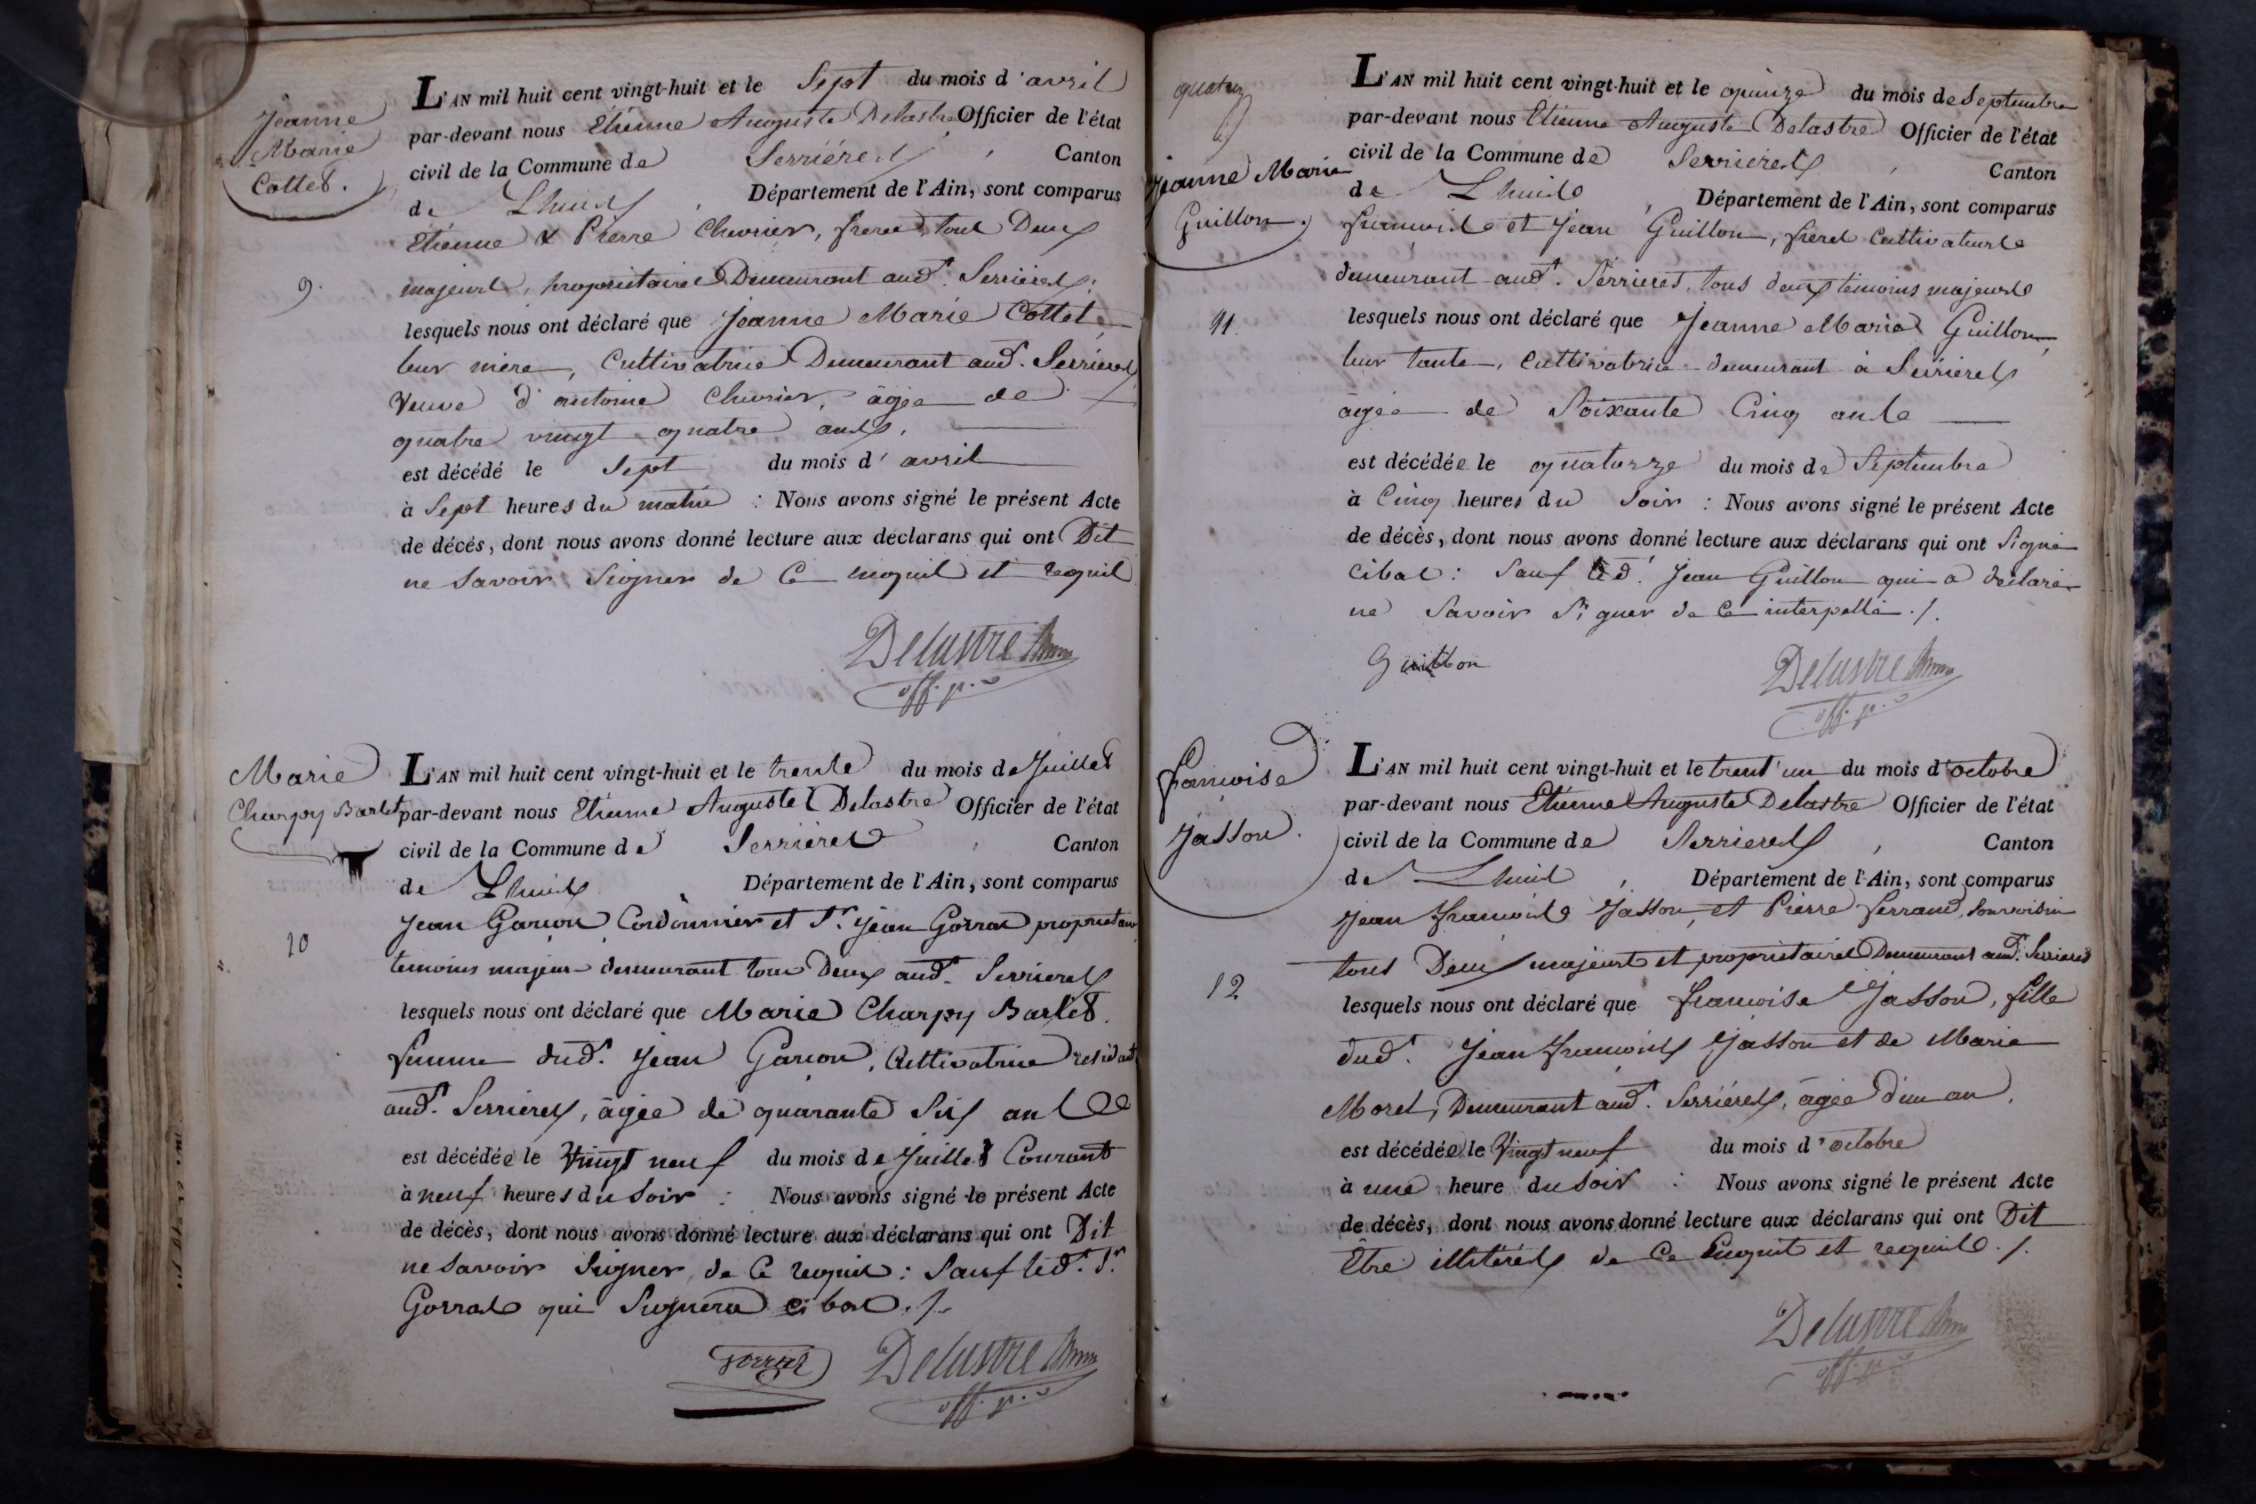 Jeanne
Marie
Cottet.
9.
L'AN mil huit cent vingt-huit et le Sept du mois d'avril
par-devant nous Etienne Auguste Delastre Officier de l'état
civil de la Commune de Serrières, Canton
de Lhuis, Département de l'Ain, sont comparus
Etienne & Pierre Chevrier, freres, tous Deux
majeurs, propriétaires Demeurant aud.t Serrières.
lesquels nous ont déclaré que Jeanne Marie Cottet
leur mère, Cultivatrice Demeurant aud.t Serrières
Veuve d'antoine Chevrier, âgée de
quatre vingt quatre ans.
est décédé le Sept du mois d'avril
à Sept heures du matin : Nous avons signé le présent Acte
de décés, dont nous avons donné lecture aux déclarans qui ont Dit
ne Savoir Signer de Ce enquis et requis
Delastre
off. p.
Marie
Charpy Barlet
10
L'AN mil huit cent vingt-huit et le trente du mois de Juillet
par-devant nous Etienne Auguste Delastre Officier de l'état
civil de la Commune de Serrières, Canton
de Lhuis, Département de l'Ain, sont comparus
Jean Garion Cordonnier et S.r Jean Gorrat propriétaire
temoins majeurs demeurant tous Deux aud.t Serrieres
lesquels nous ont déclaré que Marie Charpy Barlet.
femme dud.t Jean Garion, Cultivatrice résidant
aud.t Serrieres, âgée de quarante Six ans
est décédée le Vingt neuf du mois de Juillet Courant
à neuf heures du Soir : Nous avons signé le présent Acte
de décès, dont nous avons donné lecture aux déclarans qui ont Dit
ne Savoir Signer, de Ce requis : Sauf led.t S.r
Gorrat qui Signera ci bas ./.
Gorrat Delastre
off. p.
quatorze
Jeanne Marie
Guillon.
11.
L'AN mil huit cent vingt-huit et le quinze du mois de Septembre
par-devant nous Etienne Auguste Delastre Officier de l'état
civil de la Commune de Serrieres, Canton
de Lhuis, Département de l'Ain, sont comparus
françois et Jean Guillon, frères Cultivateurs
demeurant aud.t Serrieres, tous deux témoins majeurs
lesquels nous ont déclaré que Jeanne Marie Guillon,
leur tante, Cultivatrice demeurant à Serrieres
âgée de Soixante Cinq ans
est décédée le quatorze du mois de Septembre
à Cinq heures du Soir : Nous avons signé le présent Acte
de décès, dont nous avons donné lecture aux déclarans qui ont Signé
cibas : Sauf led.t Jean Guillon qui a déclaré
ne Savoir Signer de Ce interpellé ./.
Guillon Delastre
off. p.
françoise
Jasson.
12
L'AN mil huit cent vingt-huit et le trent'un du mois d'octobre
par-devant nous Etienne Auguste Delastre Officier de l'état
civil de la Commune de Serrieres, Canton
de Lhuis, Département de l'Ain, sont comparus
Jean françois Jasson, et Pierre ferrand, Son voisin
tous Deux majeurs et propriétaires Demeurant aud.t Serrieres
lesquels nous ont déclaré que françoise Jasson, fille
dud.t Jean françois Jasson et de Marie
Morel, Demeurant aud.t Serrières, âgée d'un an,
est décédée le Vingt neuf du mois d'octobre
à une heure du Soir : Nous avons signé le présent Acte
de décès, dont nous avons donné lecture aux déclarans qui ont Dit
Etre illitérés de Ce Enquis et requis ./.
Delastre
off. p.